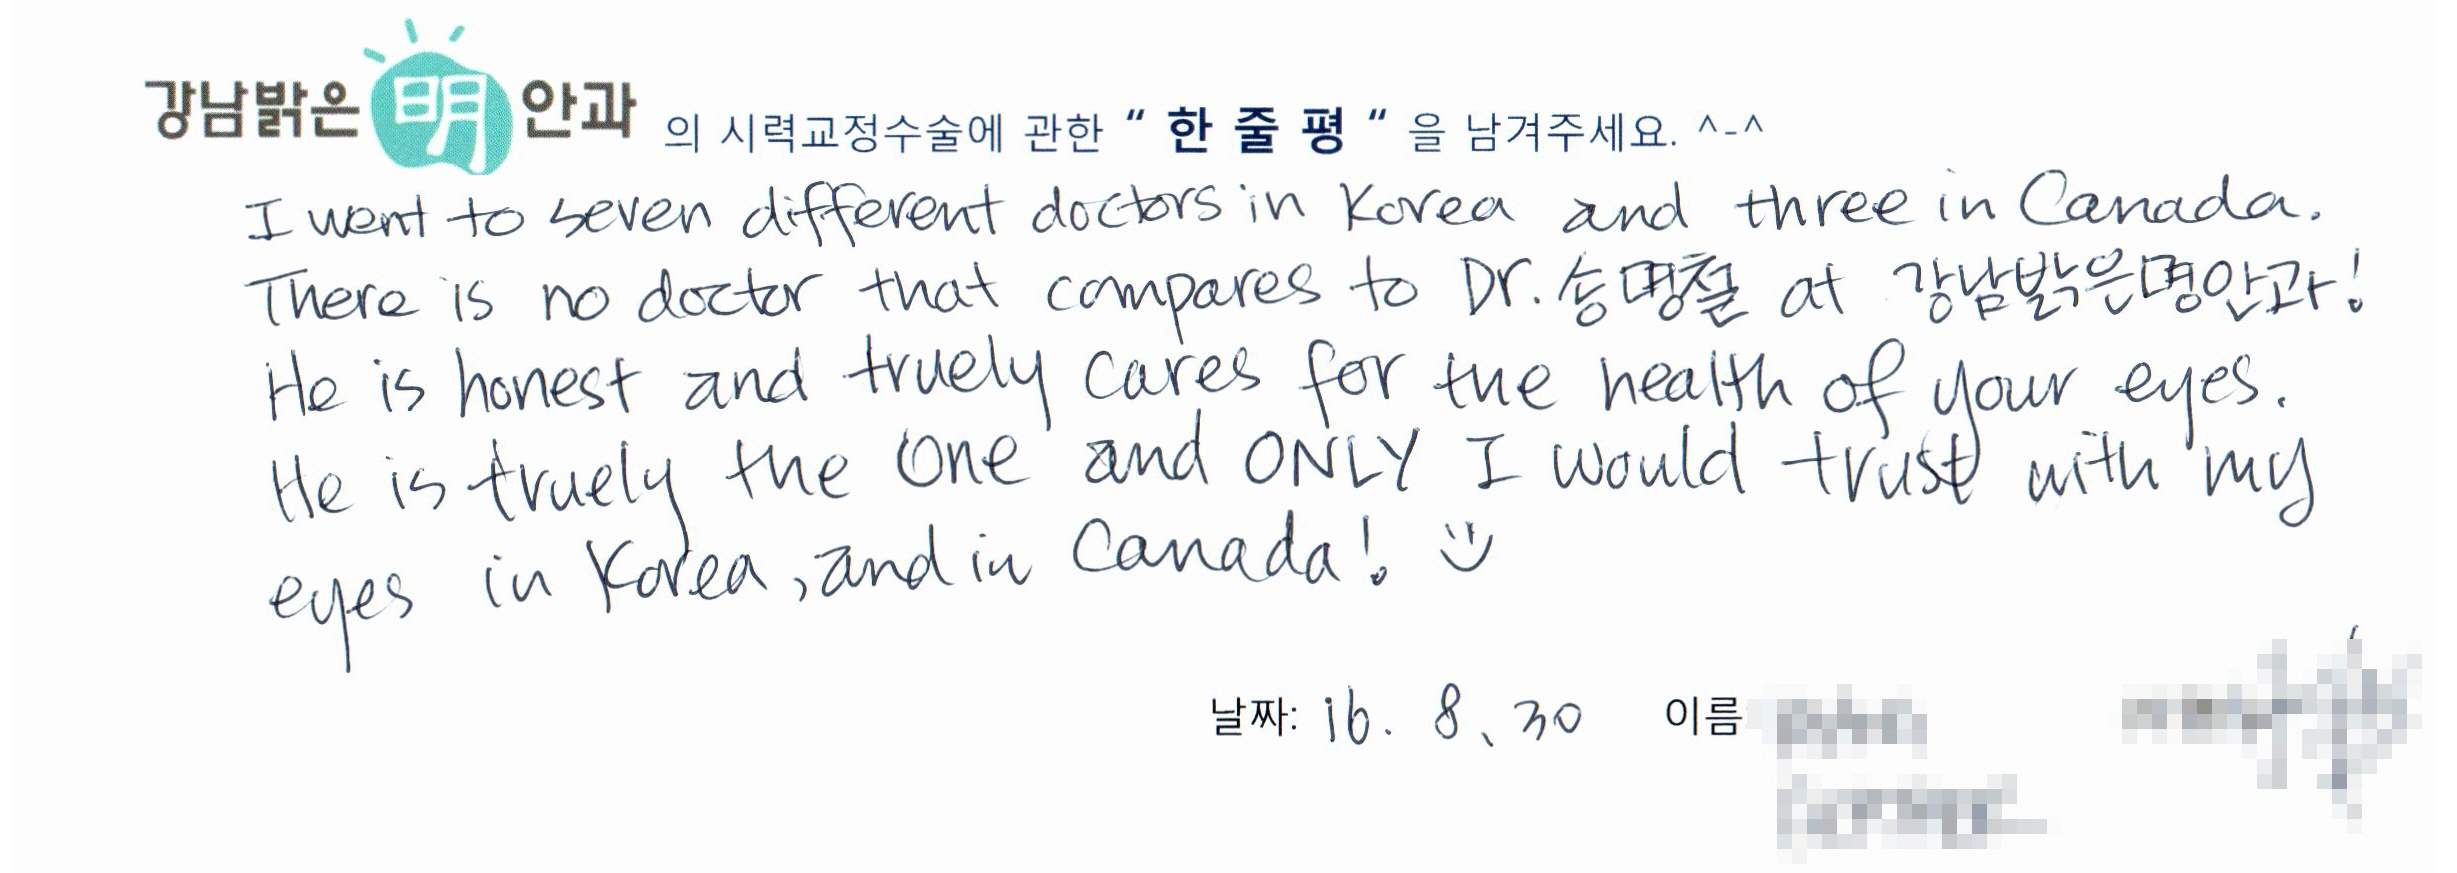 강남밝은明안과 의 시력교정수술에 관한 “ 한 줄 평 “ 을 남겨주세요. ^-^
I went to seven different doctors in Korea and three in Canada.
There is no doctor that compares to Dr. 송명철 at 강남밝은명안과!
He is honest and truely cares for the health of your eyes.
He is truely the One and ONLY I would trust with my
eyes in Korea, and in Canada!
날짜: 16. 8. 30 이름